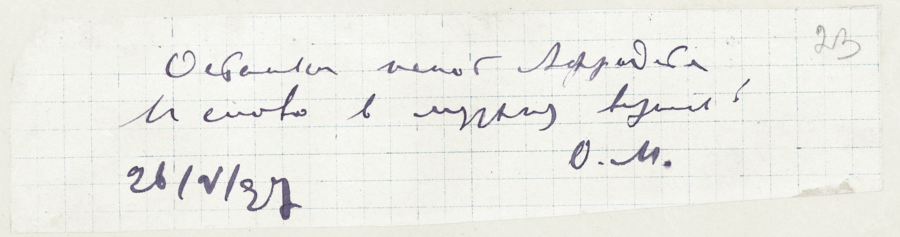 23
Останься пеной Афродита
И слово в музыку вернись!
О. М.
26/V/37